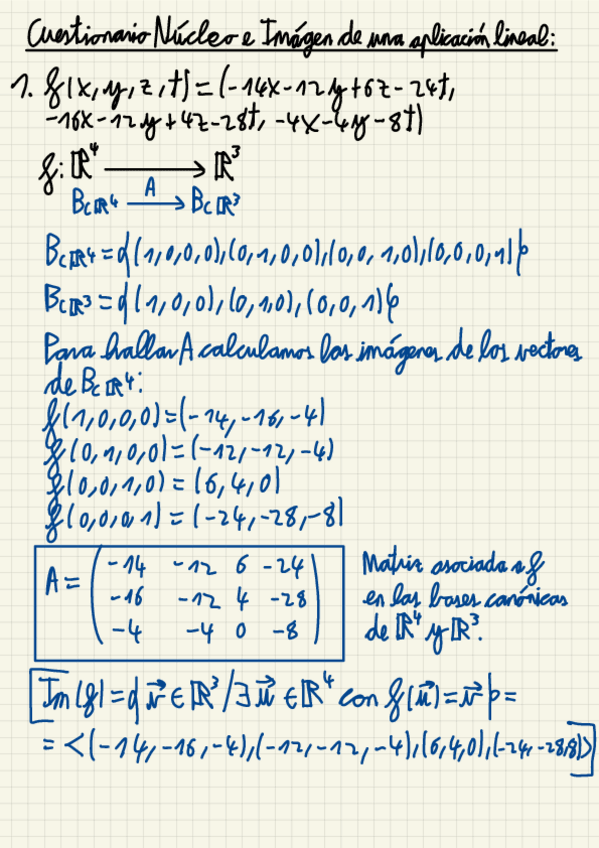 Cuestionario Núcleo e Imágen de una aplicación lineal:
1. f(x,y,z,t)=(-14x-12y+6z-24t,
-16x-12y+4z-28t, -4x-4y-8t)
f: ℝ⁴ → ℝ³
B_Cℝ⁴ —A→ B_Cℝ³
B_Cℝ⁴={(1,0,0,0),(0,1,0,0),(0,0,1,0),(0,0,0,1)}
B_Cℝ³={(1,0,0),(0,1,0),(0,0,1)}
Para hallar A calculamos las imágenes de los vectores
de B_Cℝ⁴:
f(1,0,0,0)=(-14,-16,-4)
f(0,1,0,0)=(-12,-12,-4)
f(0,0,1,0)=(6,4,0)
f(0,0,0,1)=(-24,-28,-8)
A=
-14 -12 6 -24
-16 -12 4 -28
-4 -4 0 -8
Matriz asociada a f
en las bases canónicas
de ℝ⁴ y ℝ³.
Im(f)={v⃗∈ℝ³/∃u⃗∈ℝ⁴ con f(u⃗)=v⃗}=
=<(-14,-16,-4),(-12,-12,-4),(6,4,0),(-24,-28,8)>